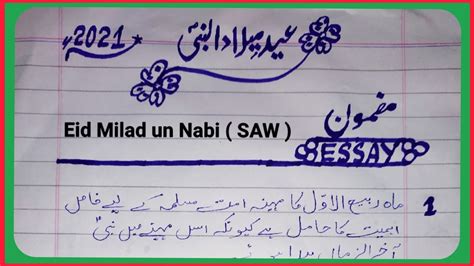 2021 عید میلادالنبیؐ
Eid Milad un Nabi ( SAW ) مضمون
ESSAY
1 ماہ ربیع الاوّل کا مہینہ امت مسلمہ کے لیے خاص
اہمیت کا حامل ہے کیونکہ اس مہینے میں نبی
آخر الزماں